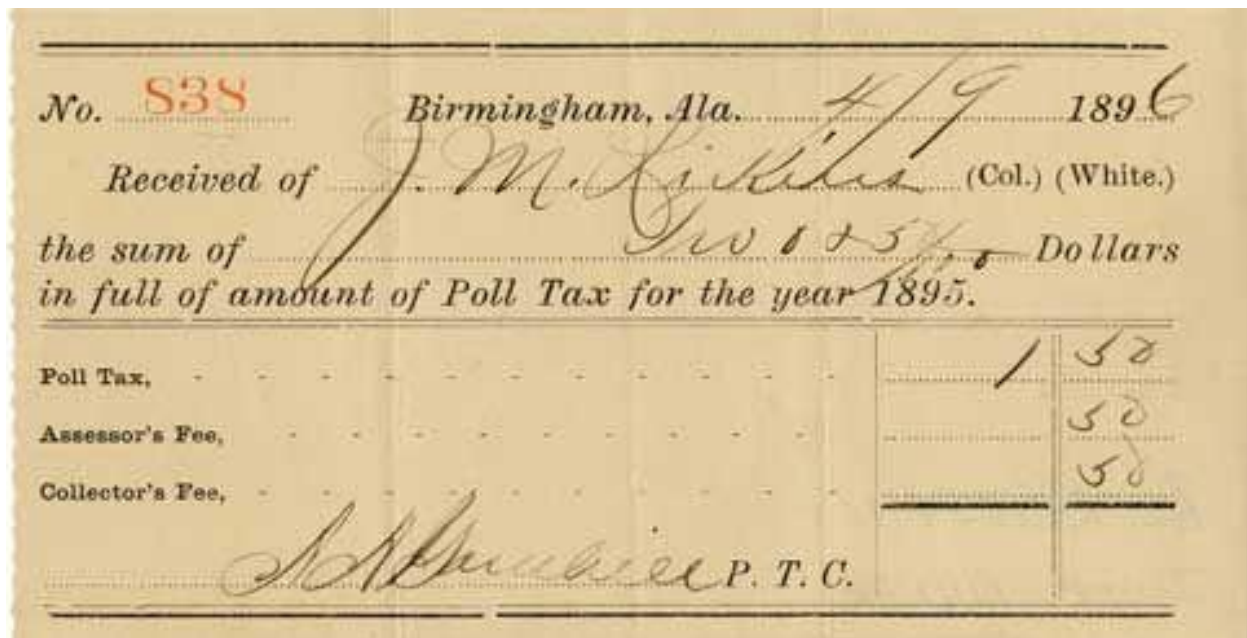 No. 838 Birmingham, Ala. 4/9 1896
Received of J. M. (Col.) (White.)
the sum of Two & 50/100 Dollars
in full of amount of Poll Tax for the year 1895.
Poll Tax, - - - - - - - - - - - 1 50
Assessor's Fee, - - - - - - - - - 50
Collector's Fee, - - - - - - - - - 50
P. T. C.